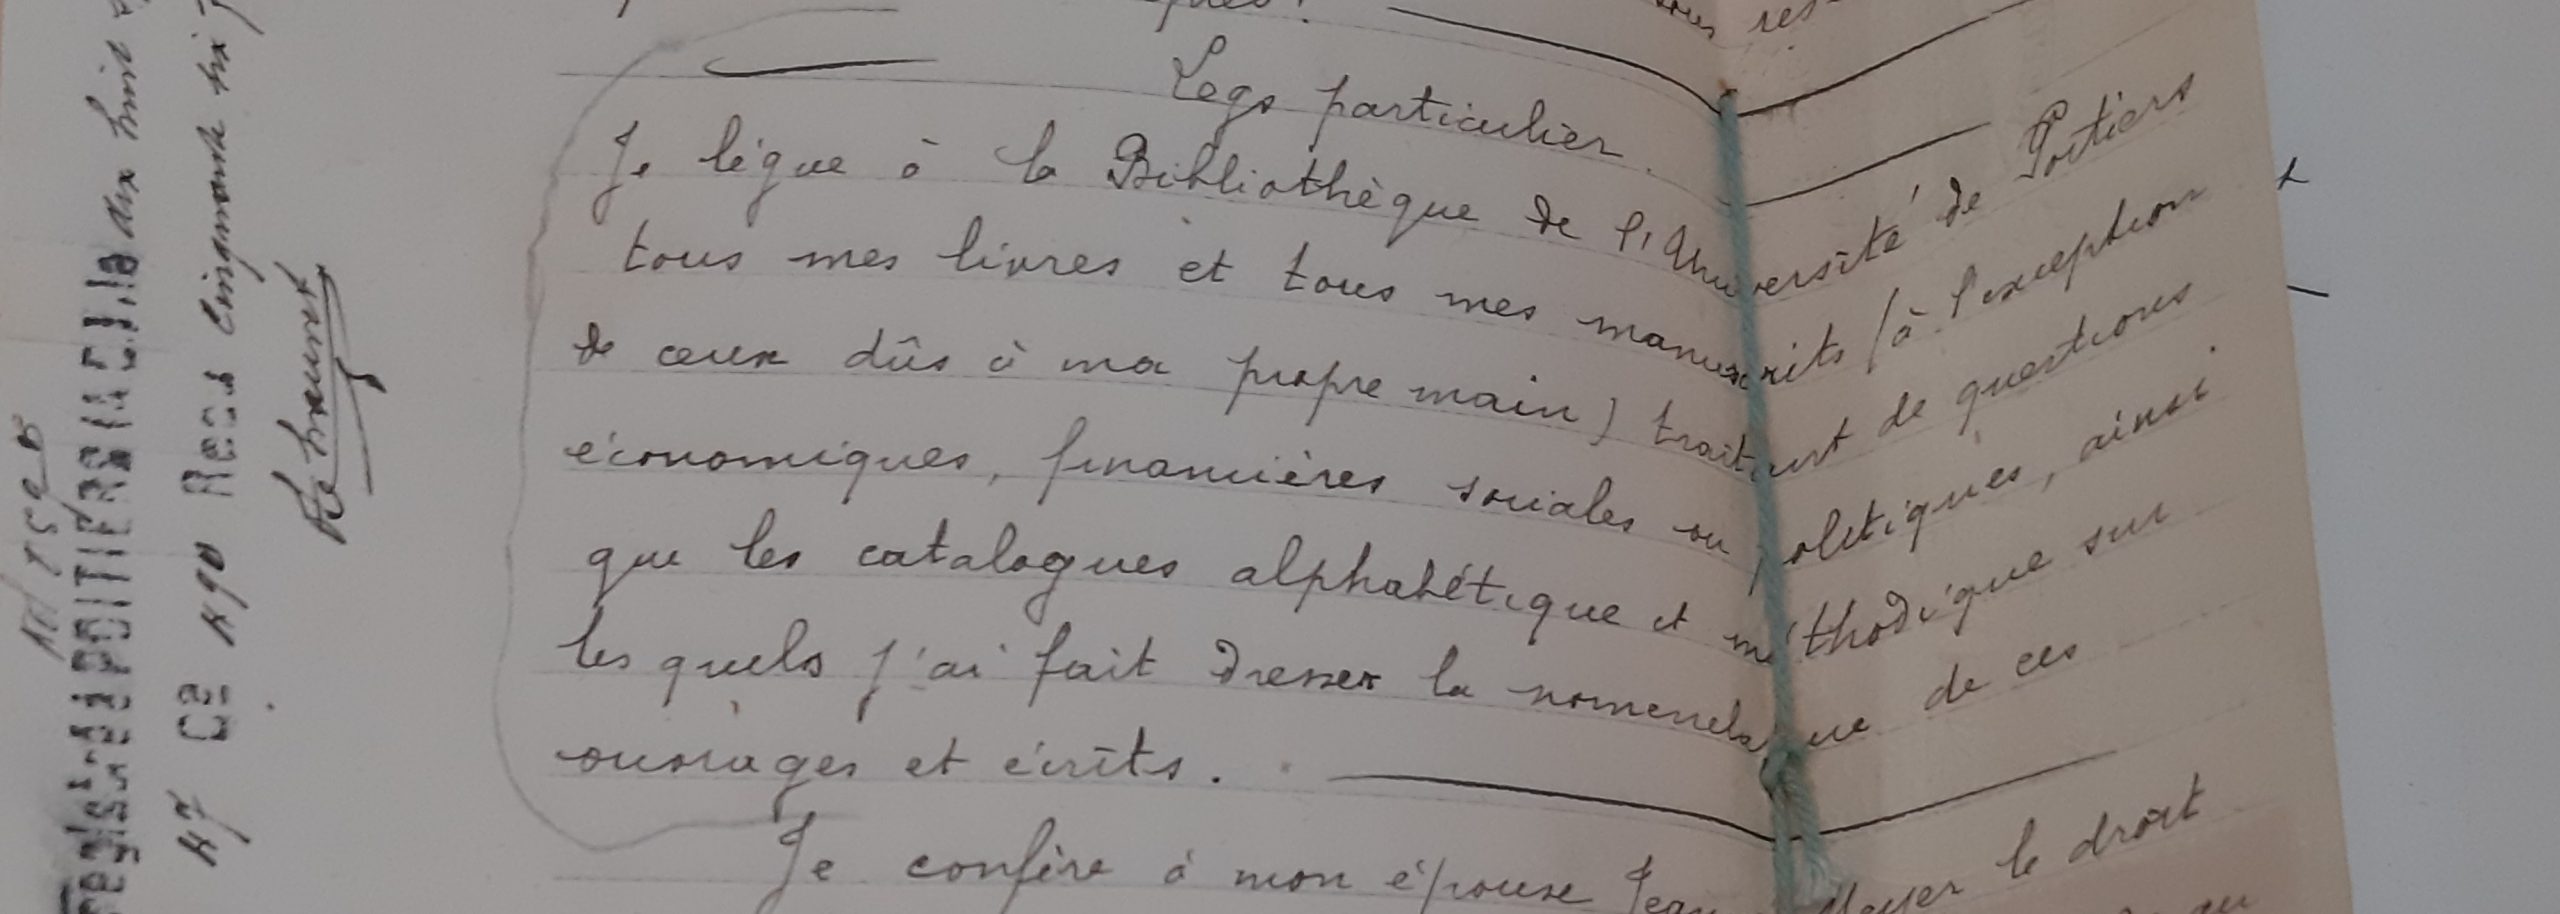 Legs particulier.
Je lègue à la Bibliothèque de l'Université de Poitiers
tous mes livres et tous mes manuscrits (à l'exception
de ceux dûs à ma propre main) traitant de questions
économiques, financières sociales ou politiques, ainsi
que les catalogues alphabétique et méthodique sur
les quels j'ai fait dresser la nomenclature de ces
ouvrages et écrits.
Je confère à mon épouse le droit
POITIERS
47 Ca 490 Reçu cinquante six